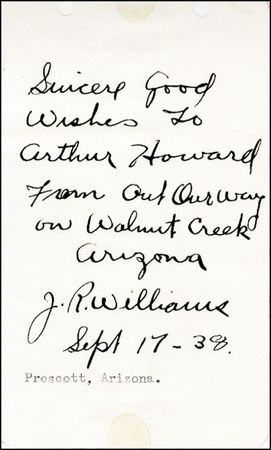 Sincere Good
Wishes To
Arthur Howard
From Out Our Way
on Walnut Creek
Arizona
J.R.Williams
Sept 17-38.
Prescott, Arizona.